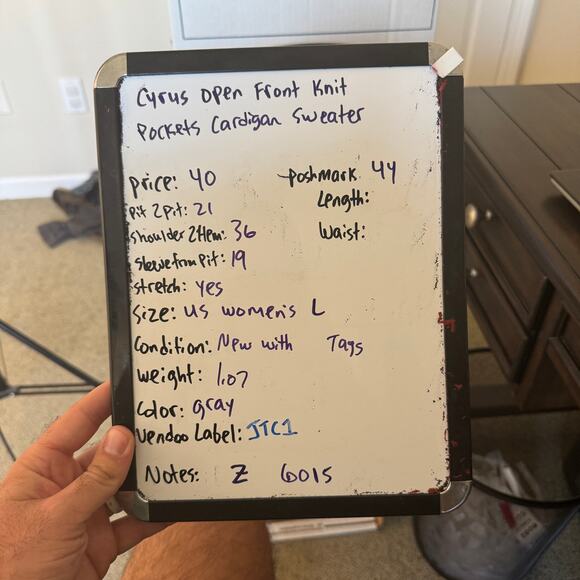 Cyrus Open Front Knit
Pockets Cardigan Sweater
Price: 40
Poshmark 44
Pit 2 Pit: 21
Length:
Shoulder 2 Hem: 36
Waist:
Sleeve from Pit: 19
Stretch: Yes
Size: US women's L
Condition: New with Tags
Weight: 1.07
Color: gray
Vendoo Label: JTC1
Notes: Z 6015